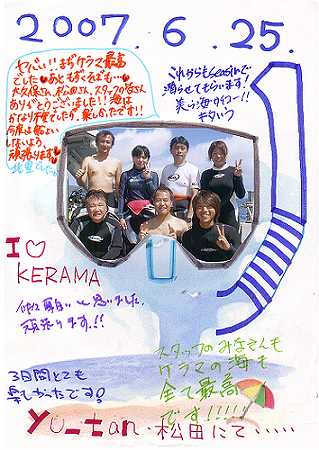 2007.6.25.
ヤバい!!まぢケラマ最高
でした♥あともずくそばも…♥
大久保さん、松田さん、スタッフの皆さん
ありがとうございました!!海は
かなり不安でしたが、楽しかったです!!
今度は船よい
しないよう
頑張ります♥
これからもseasirで
潜らせてもらいます!
美ら海サイコー!!
I ♡
KERAMA
思いました。
頑張ります!!
スタッフのみなさんも
ケラマの海も
全て最高
です!!!!!
3日間とても
楽しかったです!
yu_tan・松田にて・・・・・・